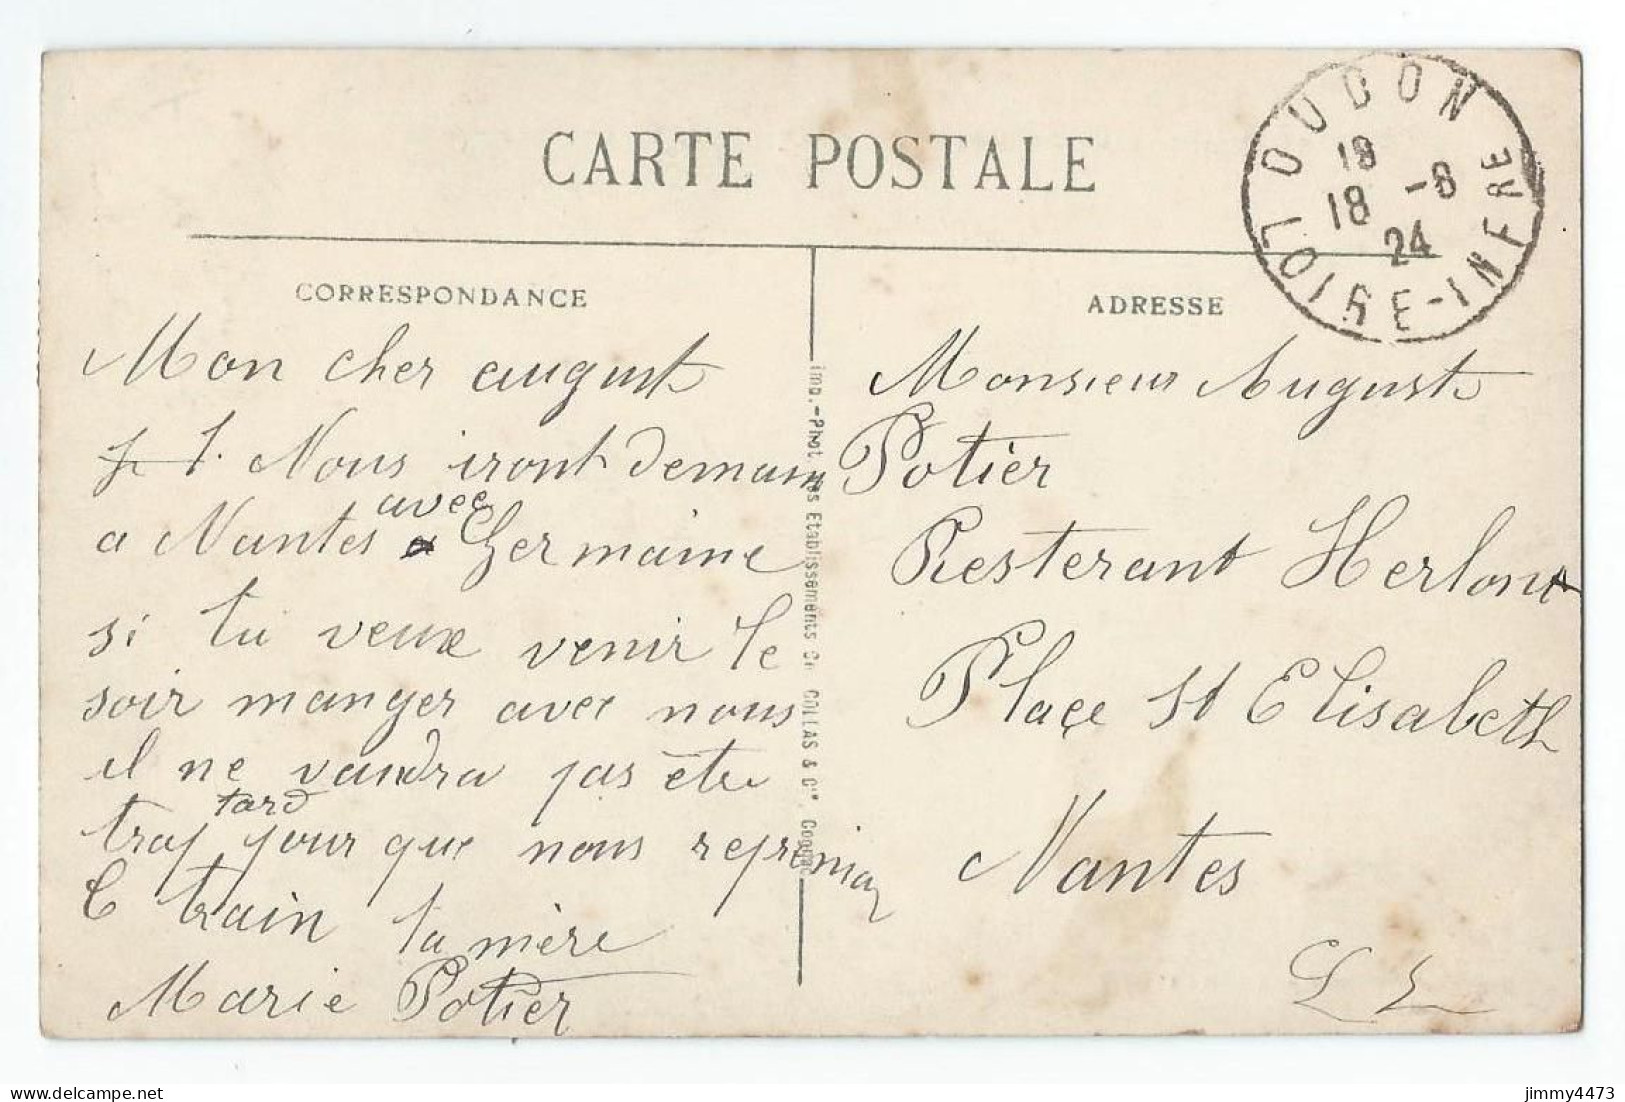 CARTE POSTALE
OUDON
18
18 -8
24
LOIRE-INFRE
CORRESPONDANCE
Mon cher auguste
Nous iront demain
avec
a Nantes Germaine
si tu veux venir le
soir manger avec nous
il ne vaudra pas être
tard
trop pour que nous
train ta mère
Marie Potier
Imp.-Phot. des Etablissements COLLAS & Cie, Cognac
ADRESSE
Monsieur Auguste
Potier
Resterant
Place St Elisabeth
Nantes
jimmy4473